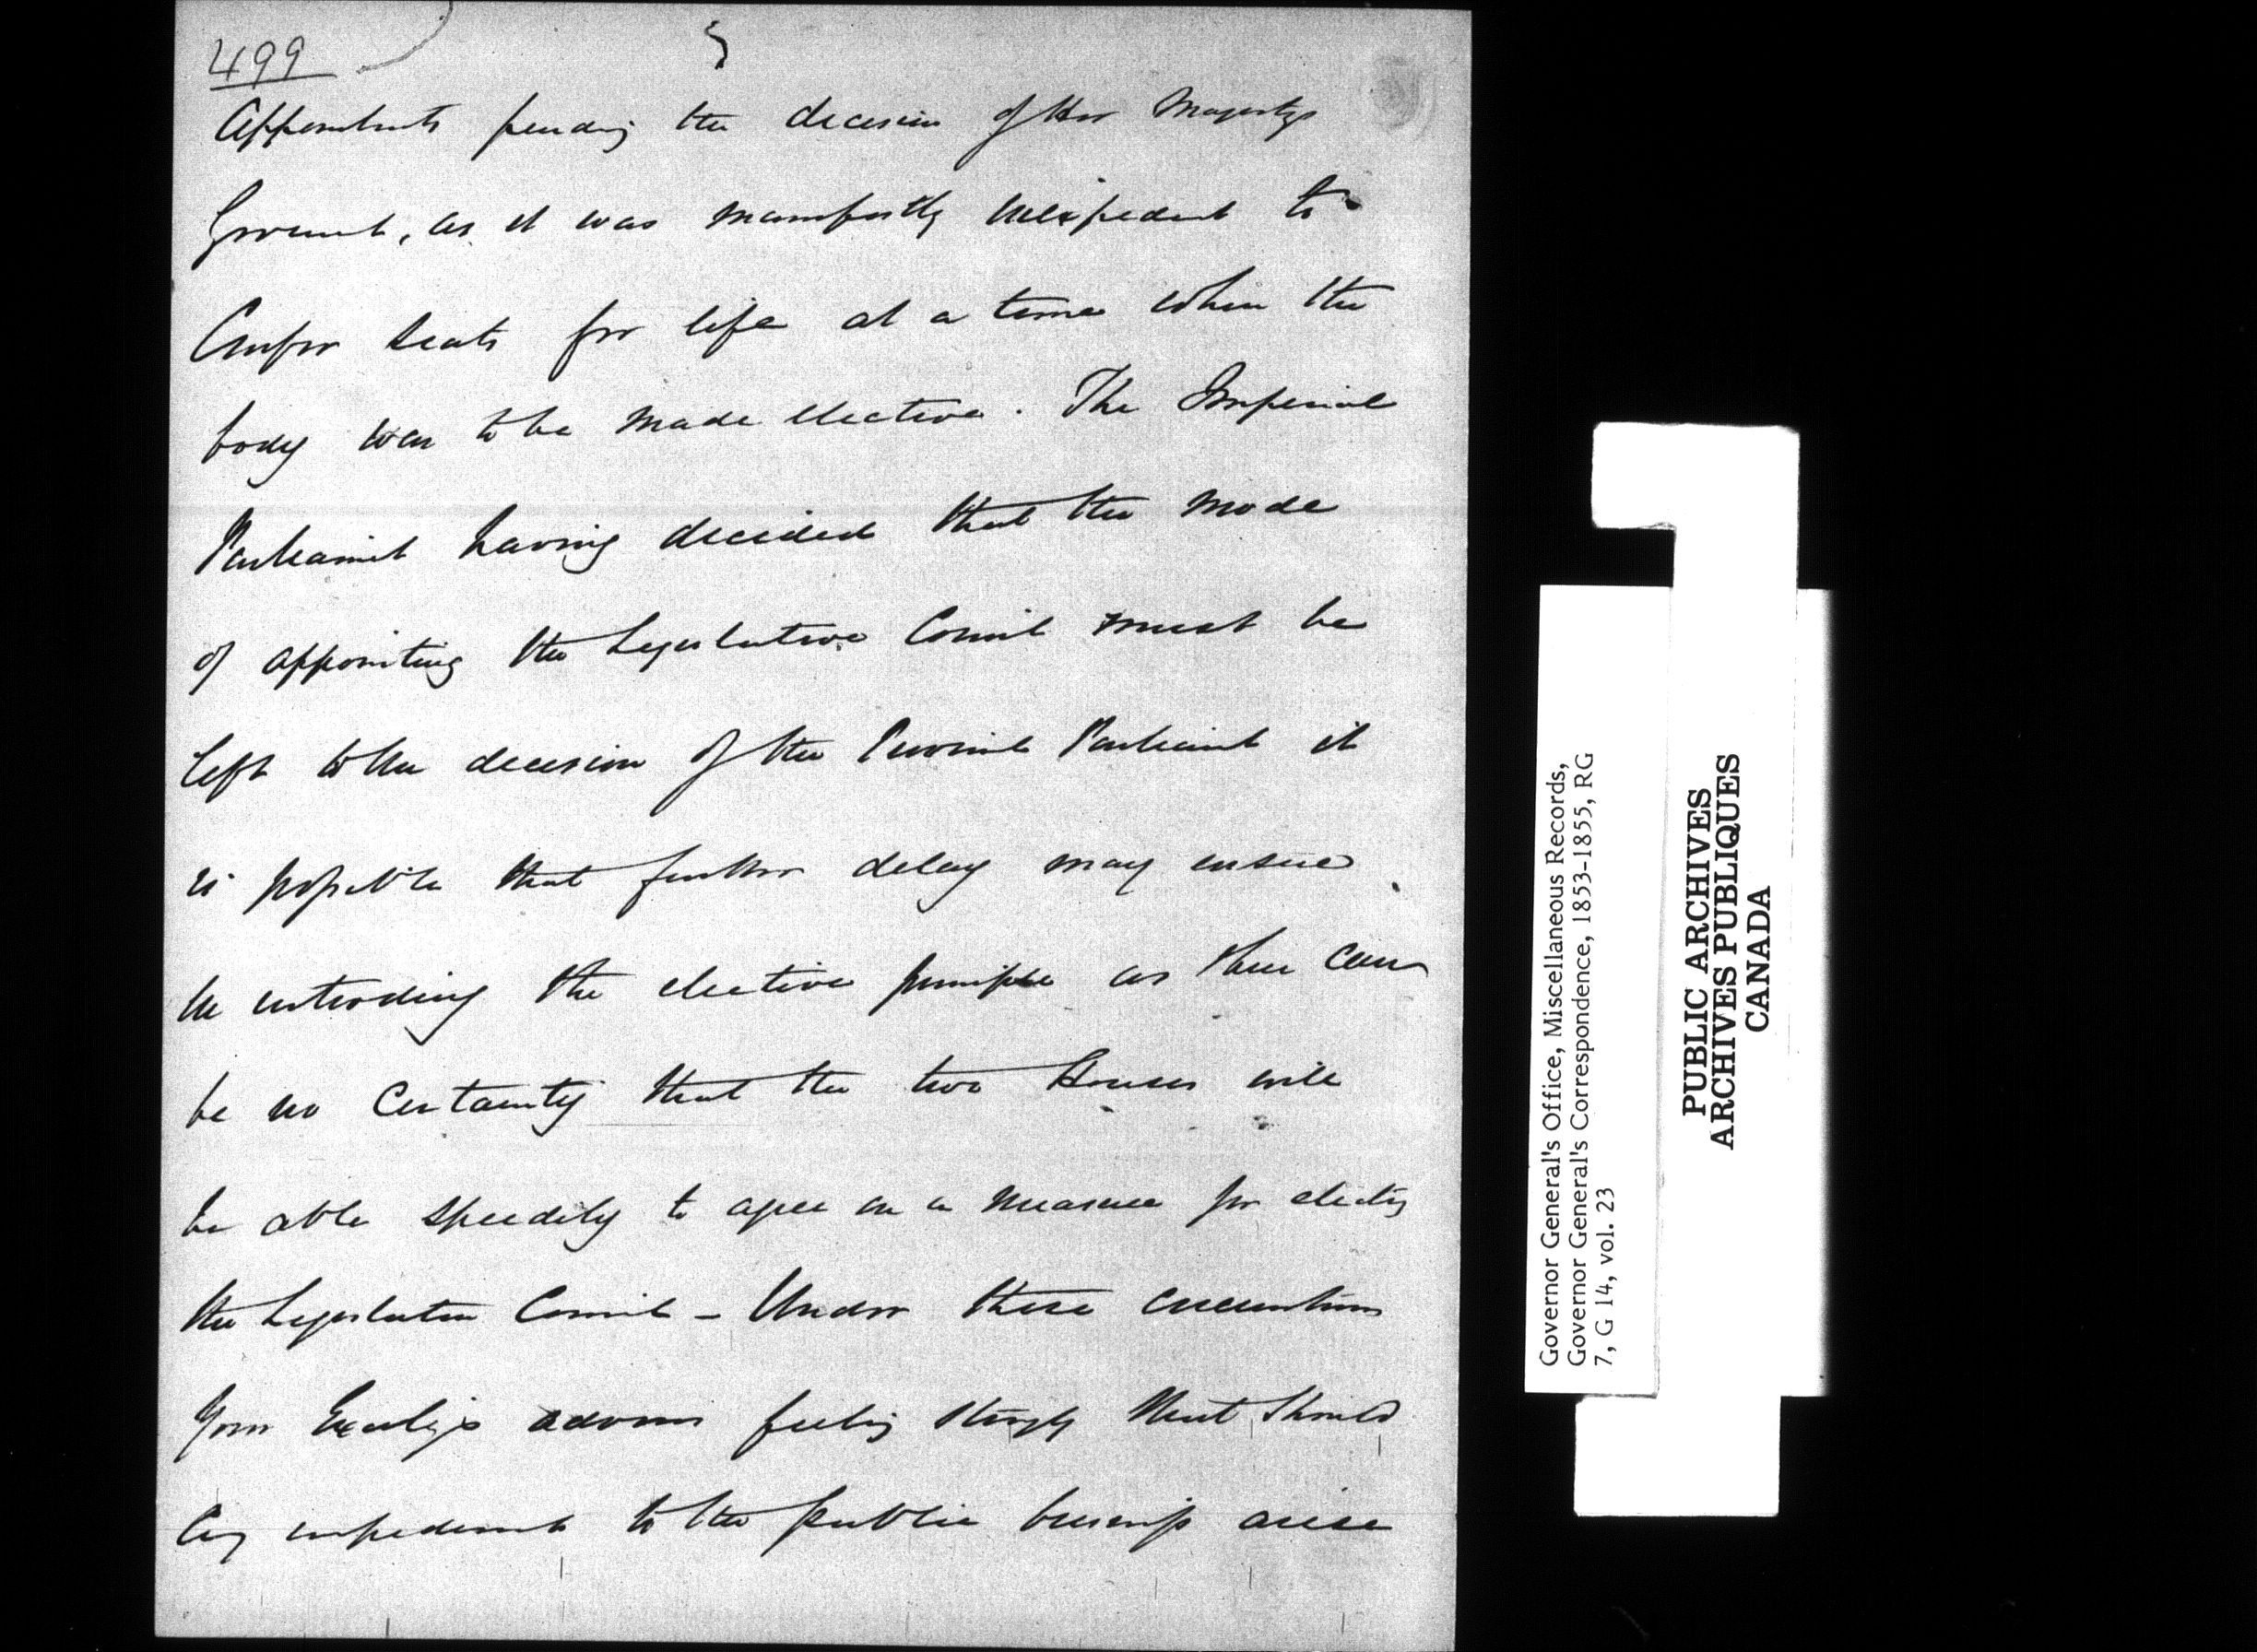 499
Appointments pending the decision of Her Majestys
Government, as it was manifestly inexpedient to
Confer Seats for life at a time when the
body was to be made elective. The Imperial
Parliament having decided that the mode
of appointing the Legislative Council must be
left to the decision of the Provincial Parliament it
is possible that further delay may ensue
in introducing the elective principle as there can
be no Certainty that the two Houses will
be able speedily to agree on a measure for electing
the Legislative Council – Under these circumstances
Your Excellency's advisers feeling strongly that should
any impediment to the public business arise
Governor General's Office, Miscellaneous Records,
Governor General's Correspondence, 1853-1855, RG
7, G 14, vol. 23
PUBLIC ARCHIVES
ARCHIVES PUBLIQUES
CANADA